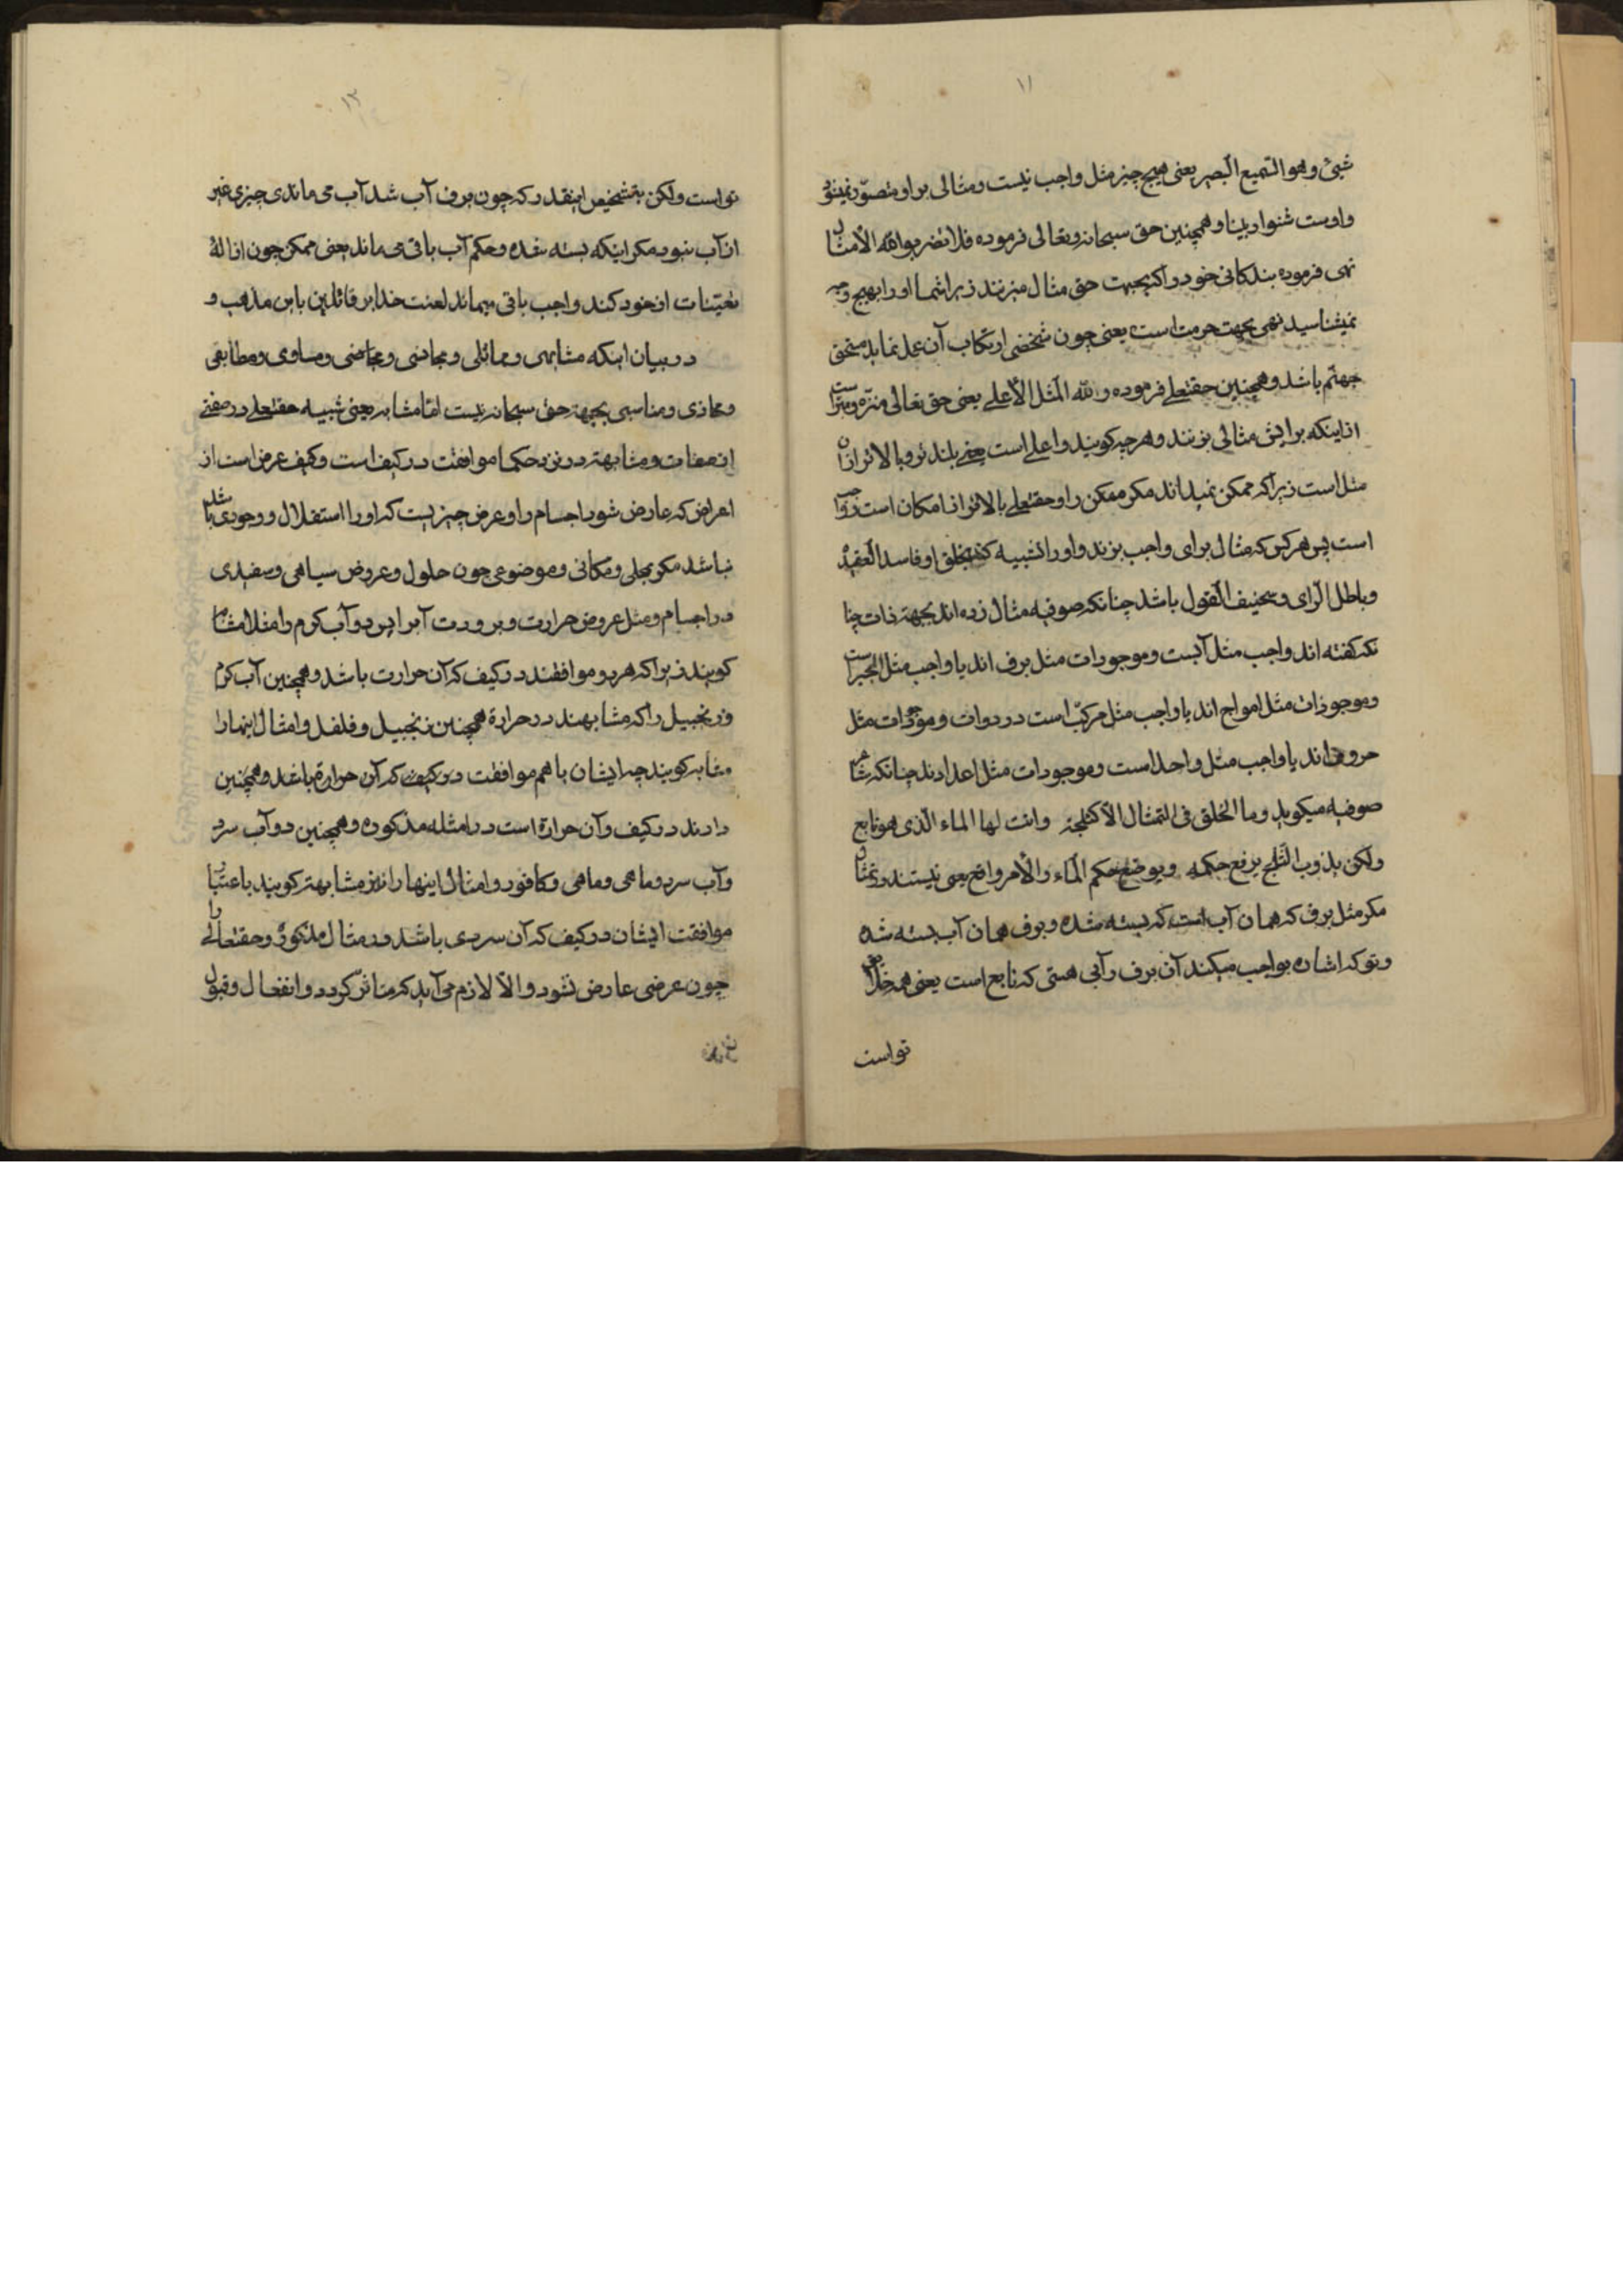 ١١
شیئ وهو السّمیع البصیر یعنی هیچ چیز مثل واجب نیست ومثالی براو متصوّر نمیشود
واوست شنوا وبینا وهمچنین حق سبحانه وتعالی فرموده فلا تضربوا لله الأمثال
نهی فرموده بندکانی خود را که بجهت حق مثال میزنند زیرا شما اورا بهیچ وجه
نمیشناسید نهی بجهت حرمت است یعنی چون شخصی ارتکاب آن عمل نماید مستحق
جهنّم باشد وهمچنین حقتعلی فرموده ولله المثل الأعلی یعنی حق تعالی منزّه ومبرّاست
از اینکه برایش مثالی بزنند وهرچه کویند واعلی است یعنی بلند تر وبالاتر از آن
مثل است زیرا که ممکن نمیداند مکر ممکن را وحقتعلی بالاتر از امکان است
است پس هرکس که مثال برای واجب بزند واورا تشبیه کند بخلق او فاسد العقیده
وباطل الرای وسخیف القول باشد چنانکه صوفیه مثال زده اند بجهة ذات چنا
نکه کفته اند واجب مثل آبست وموجودات مثل برف اند یا واجب مثل البحر است
وموجودات مثل امواج اند یا واجب مثل مرکّب است در دوات وموجودات مثل
حروفاند یا واجب مثل واحد است وموجودات مثل اعدادند چنانکه شاعر
صوفیه میکوید وما الخلق فی التمثال الّا کثلجة وانت لها الماء الّذی هو نابع
ولکن یذوب الثّلج یرفع حکمه ویوضع حکم الماء والأمر واقع یعنی نیستند در تمثال
مکر مثل برف که همان آب است که بسته شده وبرف همان آب بسته شده
وتو که اشاره بواجب میکند آن برف را آبی هستی که نابع است یعنی همه خلق
تواست
١٢
تواست ولکن بتشخیص اینقدر که چون برف آب شد آب می ماند چیزی غیر
از آب نبود مکر اینکه بسته شده وحکم آب باقی می ماند یعنی ممکن چون ازاله
تعیّنات از خود کند واجب باقی میماند لعنت خدا بر قائلین باین مذهب و
در بیان اینکه مشابهی ومماثلی ومجانسی ومساوی ومطابقی
ومحاذی ومناسبی بجهة حق سبحانه نیست امّا مشابه یعنی شبیه حقتعلی در صفتی
از صفات ومشابهة در نزد حکما موافقت در کیف است وکیف عرض است از
اعراض که عارض شود اجسام را وعرض چیزیست که اورا استقلال ووجودی
نباشد مکر بمحلی ومکانی وموضوعی چون حلول وعروض سیاهی وسفیدی
در اجسام ومثل عروض حرارت وبرودت آبرا پس دو آب کرم را مثلا مشابه
کویند زیرا که هر دو موافقند در کیف که آن حرارت باشد وهمچنین آب کرم
وزنجبیل را که مشابهند در حرارة همچنین زنجبیل وفلفل وامثال اینها را
مشابه کویند چه ایشان باهم موافقت در کیف که آن حرارة باشد وهمچنین
دارند در کیف وآن حرارة است در امثله مذکوره وهمچنین دو آب سرد
وآب سرد وماهی وماهی وکافور وامثال اینها را نیز مشابهة کویند باعتبار
موافقت ایشان در کیف که آن سردی باشد در مثال مذکوره وحقتعالی را
چون عرضی عارض نشود والّا لازم می آید که متاثّر کردد وانفعال وقبول